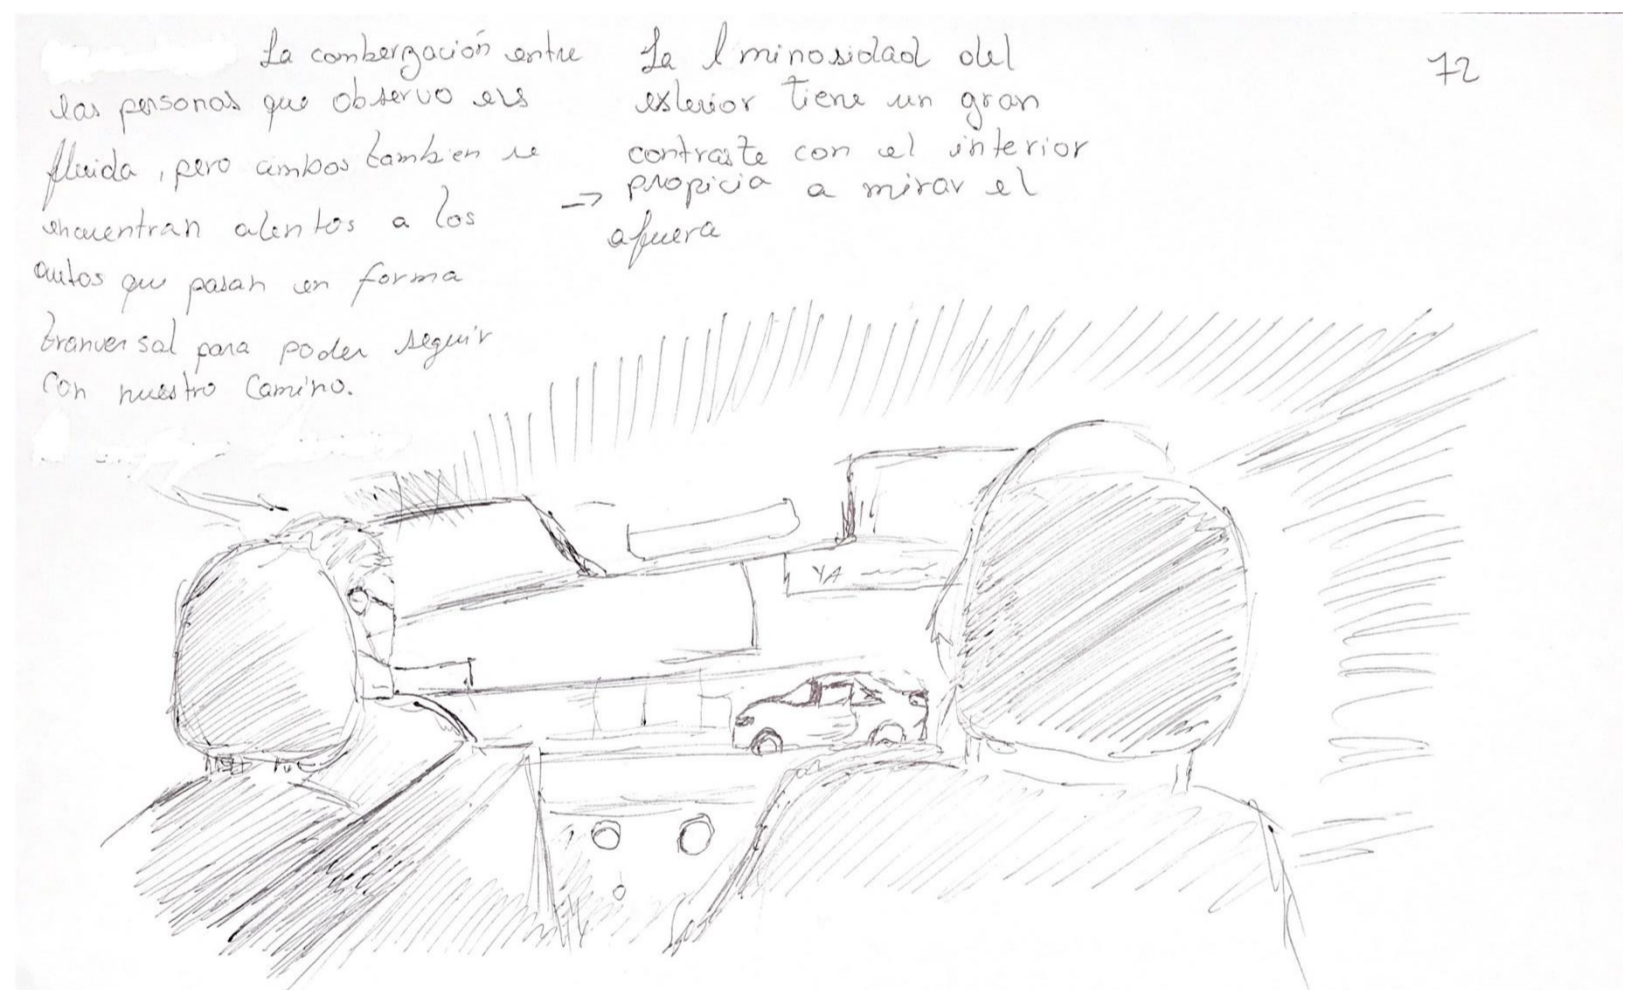 La combergación entre
las personas que observo ers
fluida, pero ambos tambien se
encuentran atentos a los
autos que pasan en forma
tranversal para poder seguir
con nuestro camino.
La lminosidad del
exterior tiene un gran
contraste con el interior
→ propicia a mirar el
afuera
72
YA